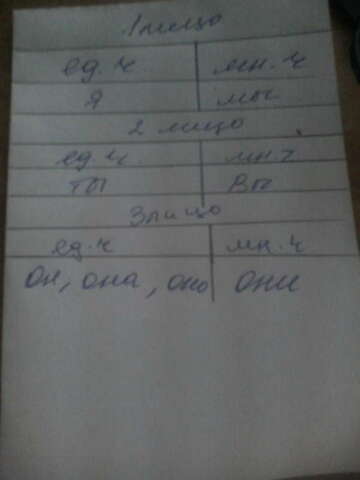 1 лицо
ед. ч мн. ч
я мы
2 лицо
ед. ч мн. ч
ты вы
3 лицо
ед. ч мн. ч
он, она, оно они